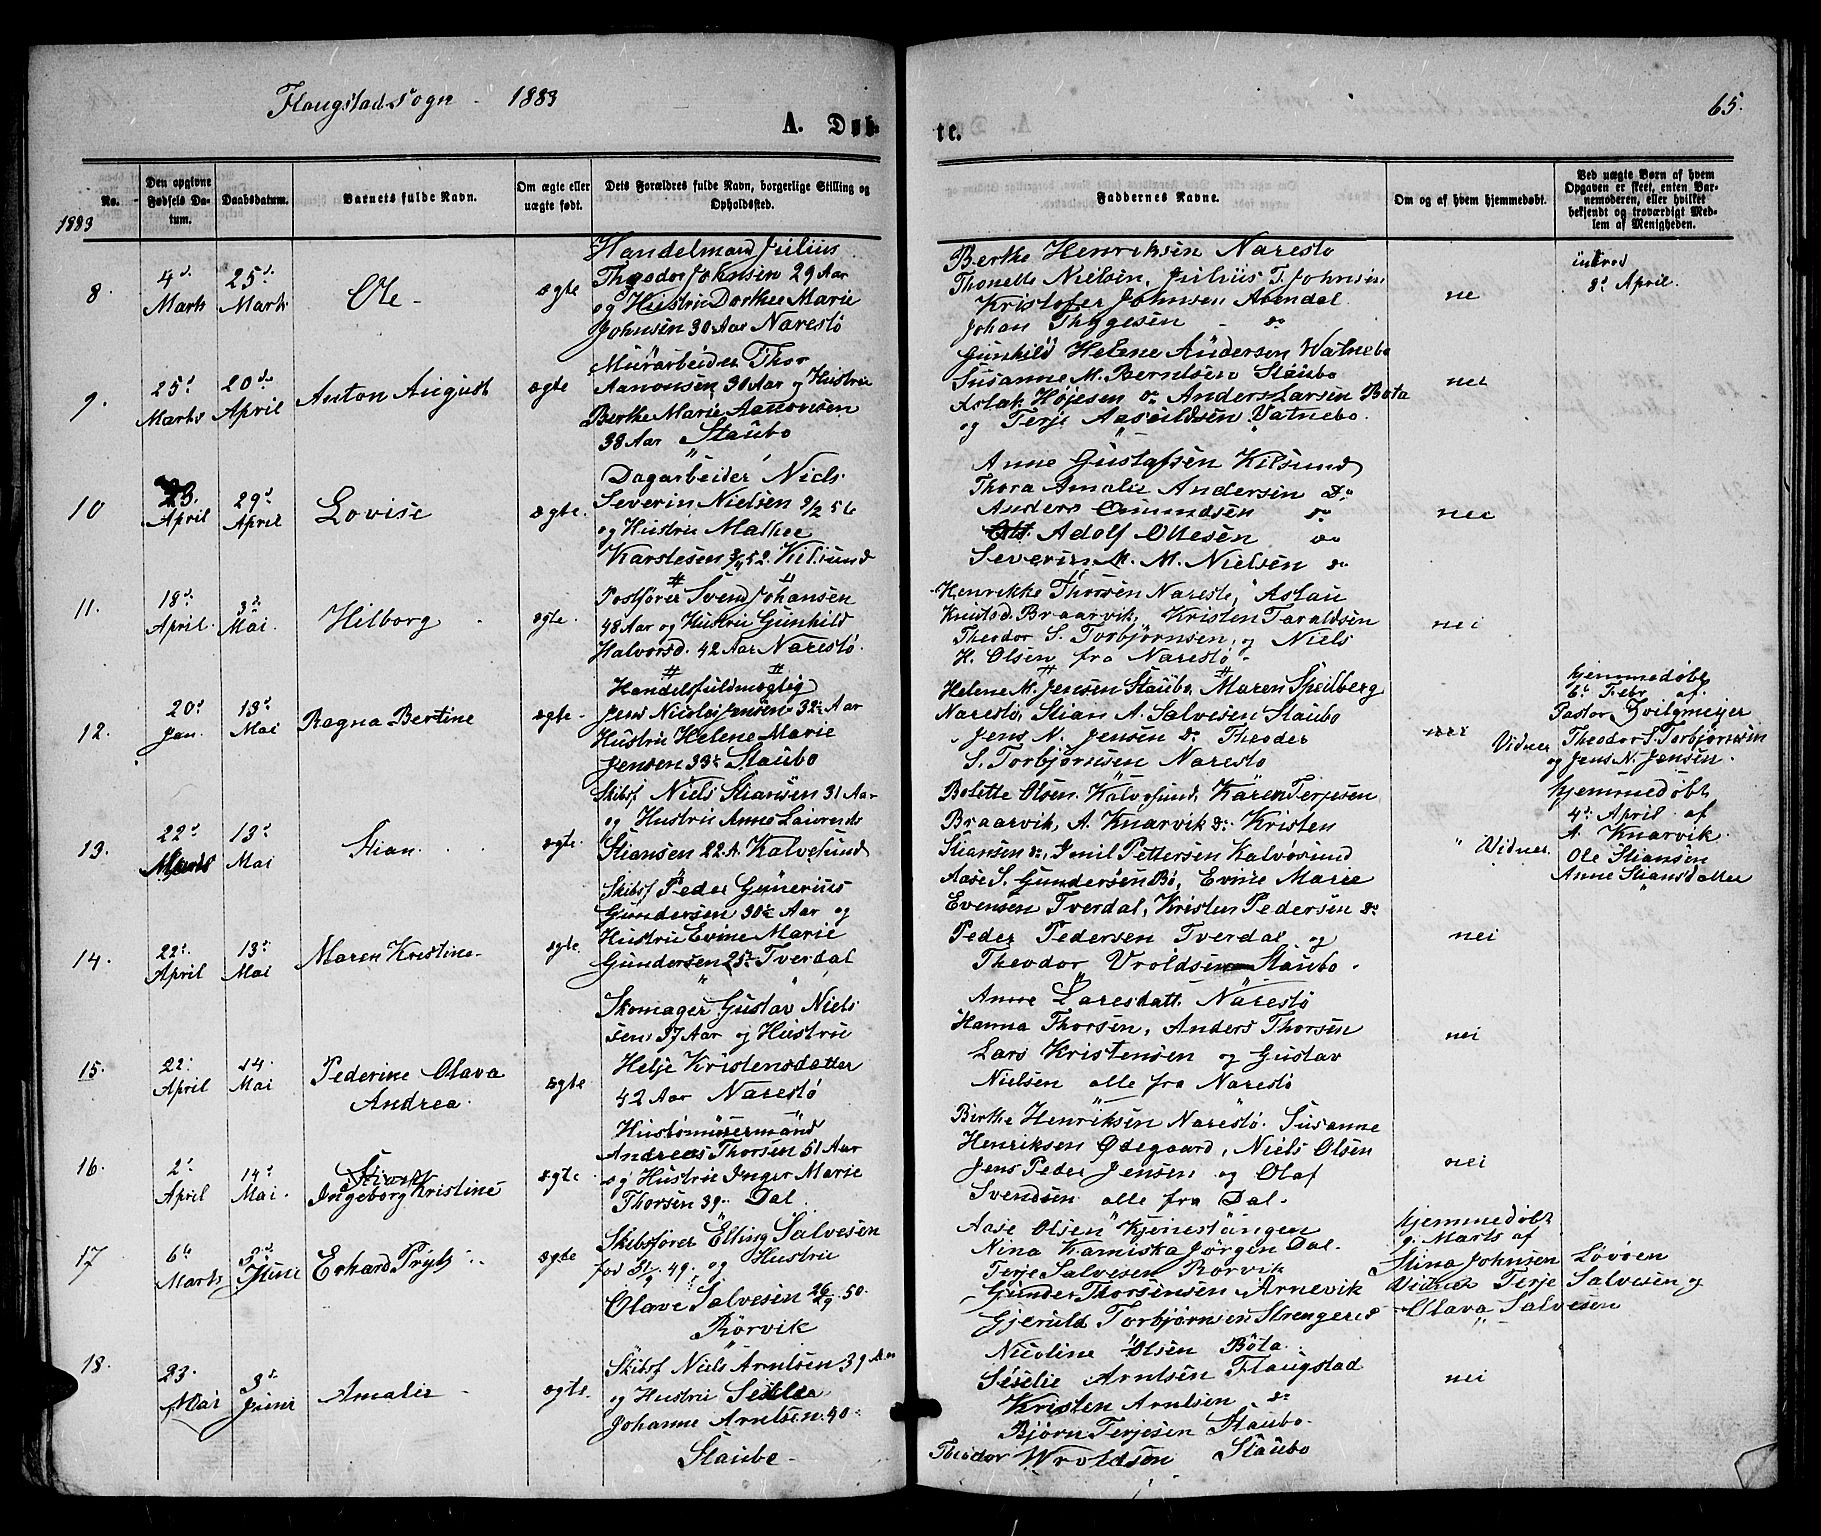 Flangstad Sogn - 1883
A. Døb-
te.
65.
No.
Den opgivne Fødsels Da-
tum.
Daabsdatum.
Barnets fulde Navn.
Om ægte eller
uægte født.
Dets Forældres fulde Navn, borgerlige Stilling og
Opholdssted.
Faddernes Navne.
Om og af hvem hjemmedøbt.
Ved uægte Børn af hvem
Opgaven er skeet, enten Bar-
nemoderen, eller hvilket
bekjendt og troværdigt Med-
lem af Menigheden.
1883
8.
4d.
Marts
25d.
Marts
Ole -
ægte
Handelmand Julius
Theodor Johnsen 29 Aar
og Hustru Dorthee Marie
Johnsen 30 Aar Narestö
Berthe Henriksen Narestö
Thonette Nielsen, Julius T. Johnsen
Kristofer Johnsen Arendal
Johan Thygesen - do
ne
introd
8d April.
9.
25d
Marts
20de
April
Anton August
ægte
Murarbeider Thor
Aanonsen 30 Aar og Hustru
Berthe Marie Aanonsen
38 Aar Staubo
Gunhild Helene Anderson Watnebo
Susanne M. Berntsen Staubo
Aslak Højesen do Anders Larsen Bota
og Terje Aasuldsen Vatnebo.
nei
10
23.
April
29d
April
Lovise
ægte.
Dagarbeider Niels
Severin Nielsen 9/2 56
og Hustru Mathee
Karstesen 3/4 52. Kilsund
Anne Gustafsen Kilsund
Thora Amalie Andersen Do
Anders Omundsen do
Adolf Ottesen do
Severin M. M. Nielsen do
nei
11.
18d.
April.
3d.
Mai
Hilborg
ægte.
Postfører Svend Johansen
48 Aar og Hustru Gunhild
Halvorsd. 42 Aar Narestö.
Henrikke Thorsen Narestö, Aslau
Knutsd. Braarvik, Kristen Taraldsen
Theodor S. Torbjörnsen, og Niels
K. Olsen fra Narestö -
nei
12.
20d
Jan.
13d
Mai
Ragna Bertine
ægte
Handelsfuldmægtig
Jens Nicolai Jensen 32 Aar
Hustru Helene Marie
Jensen 33 Staubo
Helene M. Jensen Staubo, Maren Speilberg
Narestö, Stian A. Salvesen Staubo
Jens N. Jensen do Theodor
S. Torbjörnsen Narestö
Vidner
hjemmedöbt
6d Febr af
Pastor Zvilgmeyer
Theodor S. Torbjörnsen
og Jens N. Jensen.
13.
22d
Marts
13d.
Mai
Stian.
ægte.
Skibsf Niels Stiansen 31 Aar
og Hustru Anne Laurends
Stiansen 22 A. Kalvesund
Bolette Olsen Kalvøsund, Karen Terjesen
Braarvik, A. Knarvik do Kristen
Stiansen do, Emil Pettersen Kalvøsund
" Vidner
hjemmedöbt
4d. April af
A. Knarvik.
Ole Stiansen
Anne Stiansdatter
14.
22d.
April
13d.
Mai
Maren Kristine
ægte
Skibsf Peder Gunerius
Gundersen 30 Aar og
Hustru Evine Marie
Gundersen 25 Tverdal
Aase S. Gundersen Bö, Evine Marie
Evensen Tverdal, Kristen Pedersen do
Peder Pedersen Tverdal og
Theodor Vroldsen Staubo.
nei
15.
22d
April
14.
Mai
Pederine Olava
Andrea.
ægte
Skomager Gustav Niels
sen 37 Aar og Hustru
Helje Kristensdatter
42 Aar Narestö
Anne Larsdatt. Narestö
Hanna Thorsen, Anders Thorsen
Lars Kristensen og Gustav
Nielsen alle fra Narestö
nei
16.
2d
April
14d
Mai.
Ingeborg Kristine
ægte
Andreas Thorsen 51 Aar
og Hustru Inger Marie
Thorsen 39. Dal
Berthe Henriksen Narestö. Susanne
Henriksen Ødegaard, Niels Olsen
Jens Peder Jensen og Olaf
Svendsen alle fra Dal.
nei
17
6te
Marts
3d
Juni
Erhard Prytz
ægte
Skibsfører Elling Salvesen
fød 31/9 49. og Hustru
Olave Salvesen 26/29 50.
Rörvik
Aase Olsen Kjenestangen
Nina Kamiska Jørgen Dal.
Terje Salvesen Rørvik
Gunder Thorsensen Arnevik
Gjeruld Torbjørnsen Strengered
hjemmedöbt
9. Marts af
Stina Johnsen Lövöen
Vidner Terje Salvesen og
Olava Salvesen
18.
23.
Mai
3d.
Juni
Amalie
ægte.
Skibsf Niels Arntsen 39 Aar
og Hustru
Johanne Arntsen 40
Staubo -
Nicoline Olsen Bota.
Arntsen Flangstad
Kristen Arntsen do
Bjørn Terjesen Staubo.
Theodor Wroldsen Staubo
nei